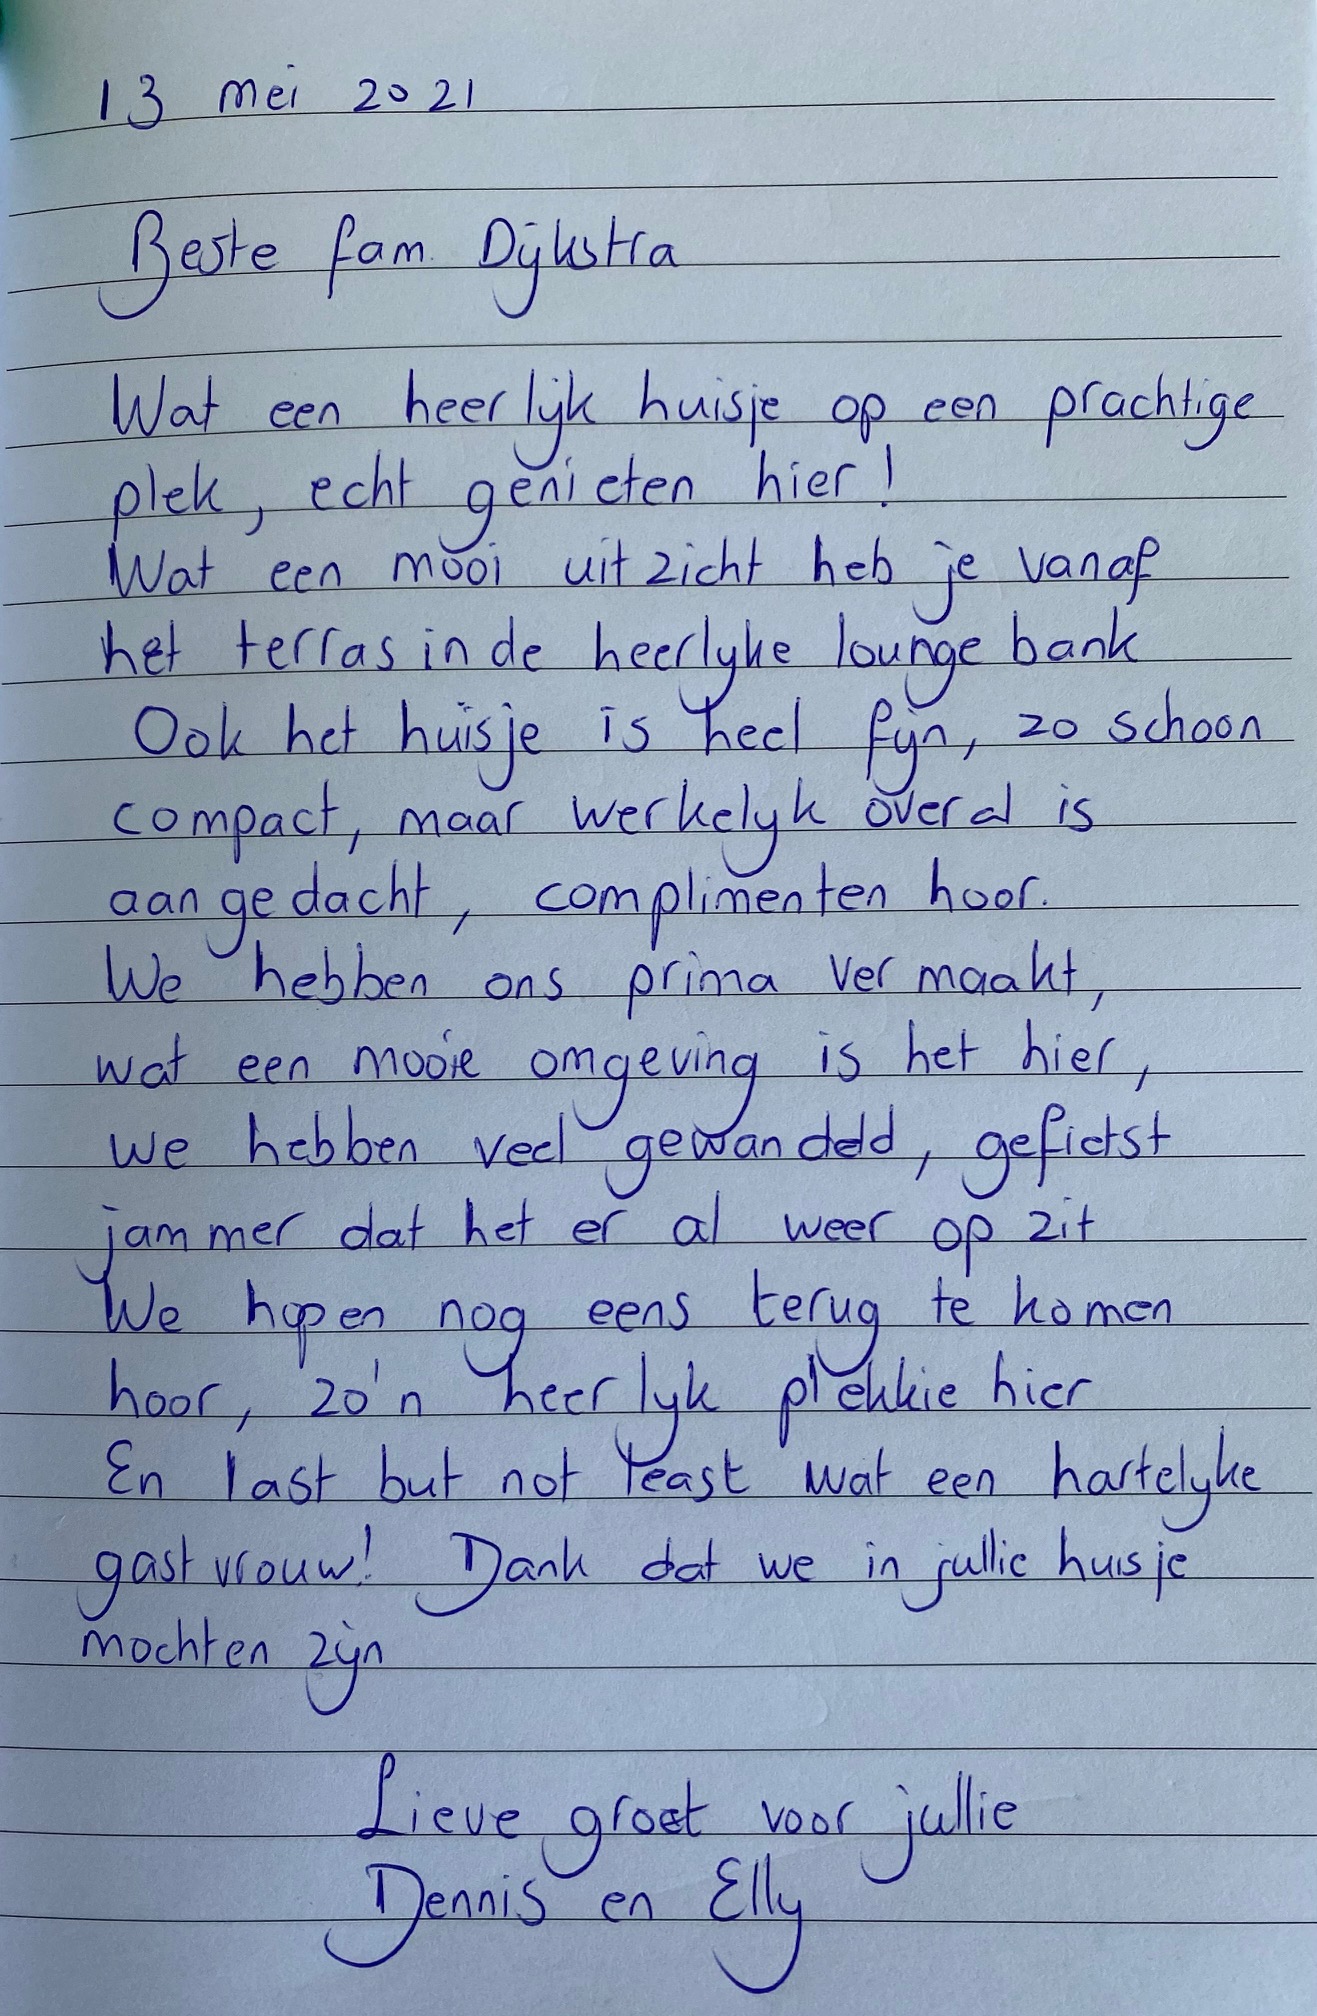 13 mei 2021
Beste fam. Dijkstra
Wat een heerlijk huisje op een prachtige
plek, echt genieten hier!
Wat een mooi uitzicht heb je vanaf
het terras in de heerlyke lounge bank
Ook het huisje is heel fijn, zo schoon
compact, maar werkelyk overal is
aan gedacht, complimenten hoor.
We hebben ons prima vermaakt,
wat een mooie omgeving is het hier,
we hebben veel gewandeld, gefietst
jammer dat het er al weer op zit
We hopen nog eens terug te komen
hoor, zo'n heerlyk plekkie hier
En last but not least wat een hartelyke
gastvrouw! Dank dat we in jullie huisje
mochten zijn
Lieve groet voor jullie
Dennis en Elly